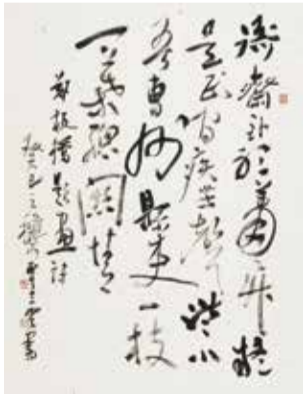 衙齋卧聽蕭蕭竹疑
是民間疾苦聲些小
吾曹州縣吏一枝
一葉總關情
鄭板橋題畫詩
癸巳之 書